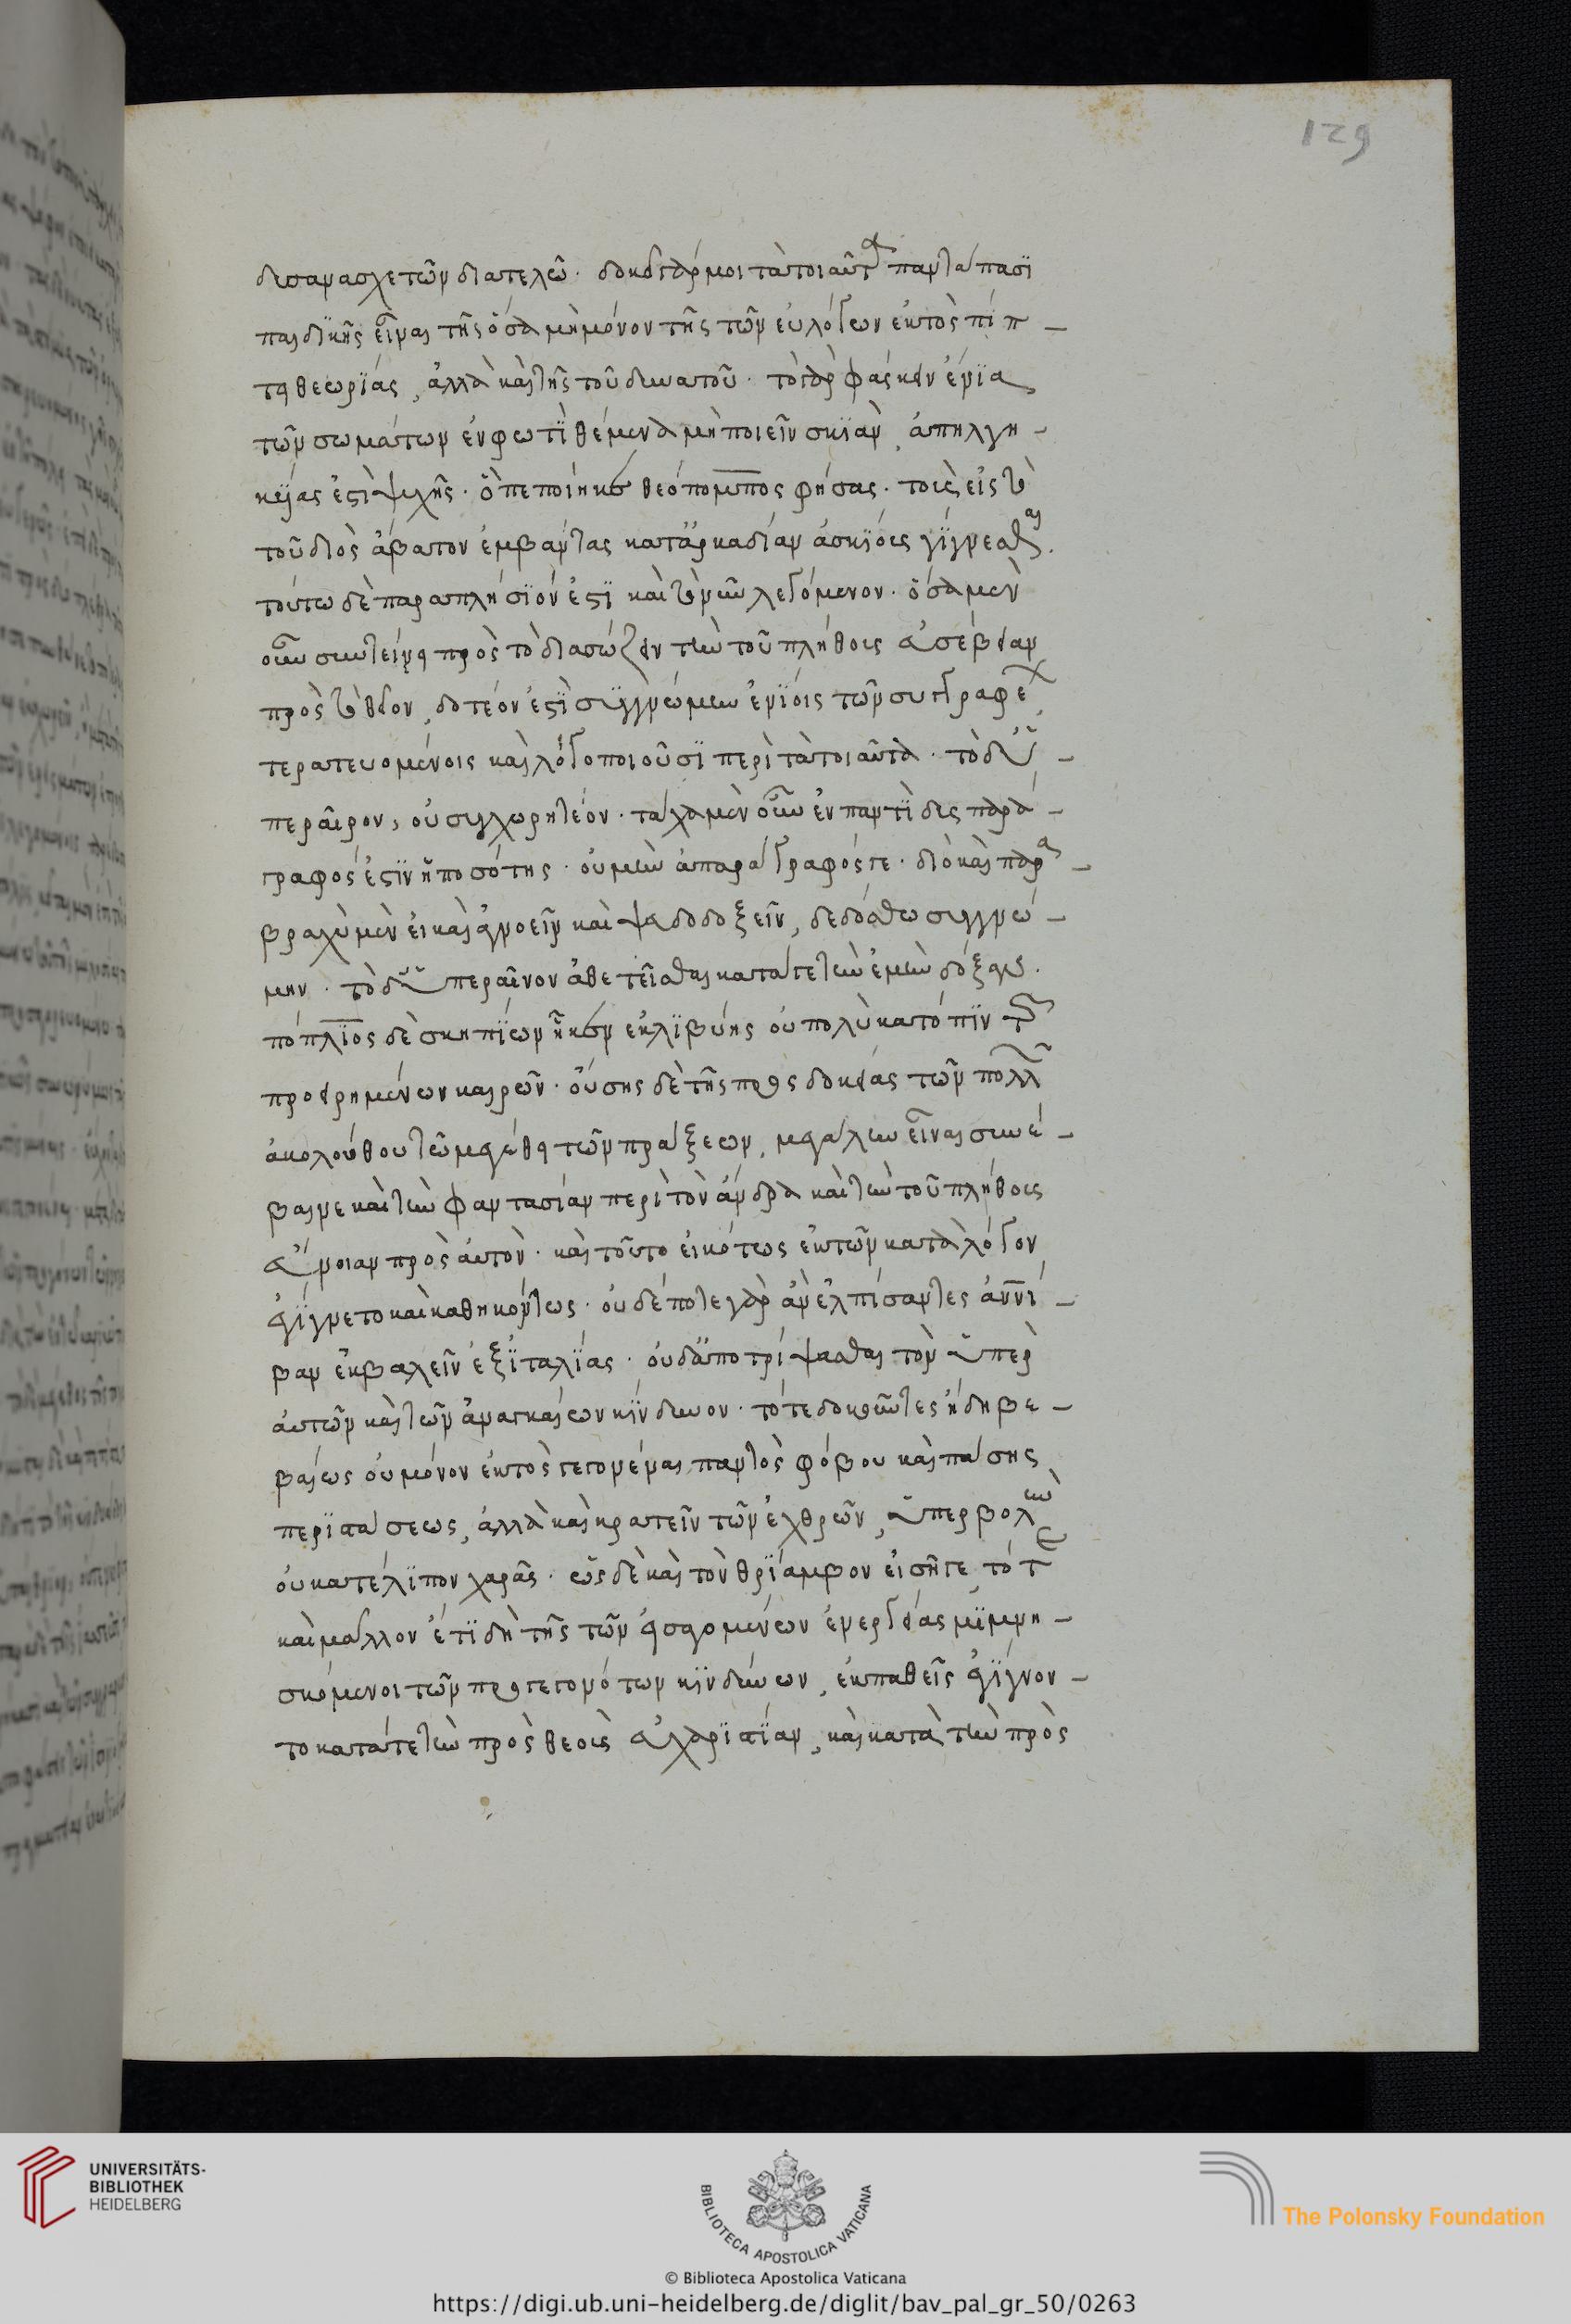 129
δυσανασχετῶν διατελῶ. δοκεῖ γάρ μοι τὰ τοιαῦτα παντάπασϊ
παιδϊκῆς εἶναι τῆς ὅσα μὴ μόνον τῆς τῶν εὐλόγων ἐκτὸς πίπ-
τει θεωρίας, ἀλλὰ καὶ τῆς τοῦ δυνατοῦ. τὸ γὰρ φάσκειν ἔνϊα
τῶν σωμάτων ἐν φωτὶ τιθέμενα μὴ ποιεῖν σκϊὰν, ἀπηλγη-
κυίας ἐστὶ ψυχῆς. ὃ πεποίηκε θεόπομπος φήσας. τοὺς εἰς τὸ
τοῦ διὸς ἄβατον ἐμβάντας κατ' ἀρκαδίαν ἀσκϊους γίγνεσθαι.
τούτω δὲ παραπλήσϊόν ἐστϊ καὶ τὸ νῦν λεγόμενον. ὅσα μὲν
οὖν συντείνει πρὸς τὸ διασώζειν τὴν τοῦ πλήθους εὐσέβειαν
πρὸς τὸ θεῖον, δοτέον ἐστὶ συγγνώμην ἐνϊοις τῶν συγγραφέων
τερατευομένοις καὶ λογοποιοῦσϊ περὶ τὰ τοιαῦτα. τὸ δ' ὑ-
περαῖρον, οὐ συγχωρητέον. τάχα μὲν οὖν ἐν παντὶ δυσπαρά-
γραφός ἐστϊν ἡ ποσότης. οὐ μὴν ἀπαράγραφός γε. διὸ καὶ παρα
βραχὺ μὲν εἰ καὶ ἀγνοεῖν καὶ ψευδοδοξεῖν, δεδόσθω συγγνώ-
μη. τὸ δ' ὑπεραῖνον ἀθετείσθω κατά γε τὴν ἐμὴν δόξαν.
πόπλϊος δὲ σκηπϊων ἧκεν ἐκ λϊβύης οὐ πολὺ κατόπϊν τῶν
προειρημένων καιρῶν. οὔσης δὲ τῆς προσδοκίας τῶν πολλῶν
ἀκολούθου τῶ μεγέθει τῶν πράξεων, μεγάλην εἶναι συνέ-
βαινε καὶ τὴν φαντασίαν περὶ τὸν ἄνδρα καὶ τὴν τοῦ πλήθους
εὔνοιαν πρὸς αὐτὸν. καὶ τοῦτο εἰκότως ἐκ τῶν κατὰ λόγον
ἐγίγνετο καὶ καθηκόντως. οὐδέποτε γὰρ ἂν ἐλπίσαντες ἀννί-
βαν ἐκβαλεῖν ἐξ ἰταλίας. οὐδ' ἀποτρίψασθαι τὸν ὑπὲρ
αὐτῶν καὶ τῶν ἀναγκαίων κϊνδυνον. τότε δοκοῦντες ἤδη βε-
βαίως οὐ μόνον ἐκτὸς γεγονέναι παντὸς φόβου καὶ πάσης
περϊστάσεως, ἀλλὰ καὶ κρατεῖν τῶν ἐχθρῶν, ὑπερβολὴν
οὐ κατέλϊπον χαρᾶς. ὡς δὲ καὶ τὸν θρϊαμβον εἰσῆγε, τότε
καὶ μᾶλλον ἔτϊ διὰ τῆς τῶν εἰσαγομένων ἐνεργείας μϊμνη-
σκόμενοι τῶν προγεγονότων κϊνδύνων, ἐκπαθεῖς ἐγϊγνον-
το κατά τε τὴν πρὸς θεοὺς εὐχαρϊστϊαν, καὶ κατὰ τὴν πρὸς
UNIVERSITÄTS-
BIBLIOTHEK
HEIDELBERG
BIBLIOTECA APOSTOLICA VATICANA
The Polonsky Foundation
© Biblioteca Apostolica Vaticana
https://digi.ub.uni-heidelberg.de/diglit/bav_pal_gr_50/0263